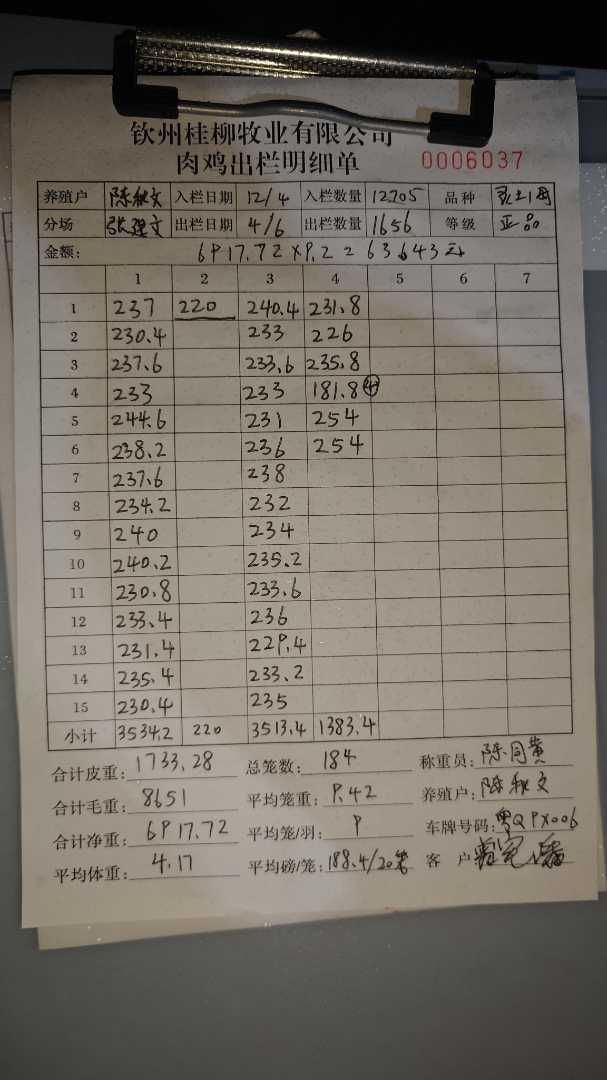 钦州桂柳牧业有限公司
肉鸡出栏明细单 0006037
养殖户 陈秋文 入栏日期 12/4 入栏数量 12205 品种
分场 张理文 出栏日期 4/6 出栏数量 1656 等级 正品
金额: 6917.72×9.2=63643元
1 2 3 4 5 6 7
1 237 220 240.4 231.8
2 230.4 233 226
3 237.6 233.6 235.8
4 233 233 181.8 ④
5 244.6 231 254
6 238.2 236 254
7 237.6 238
8 234.2 232
9 240 234
10 240.2 235.2
11 230.8 233.6
12 233.4 236
13 231.4 229.4
14 235.4 233.2
15 230.4 235
小计 3534.2 220 3513.4 1383.4
合计皮重: 1733.28 总笼数: 184 称重员: 陈同黄
合计毛重: 8651 平均笼重: 9.42 养殖户: 陈秋文
合计净重: 6917.72 平均笼/羽: 9 车牌号码: 粤QPX006
平均体重: 4.17 平均磅/笼: 188.4/20笼 客户